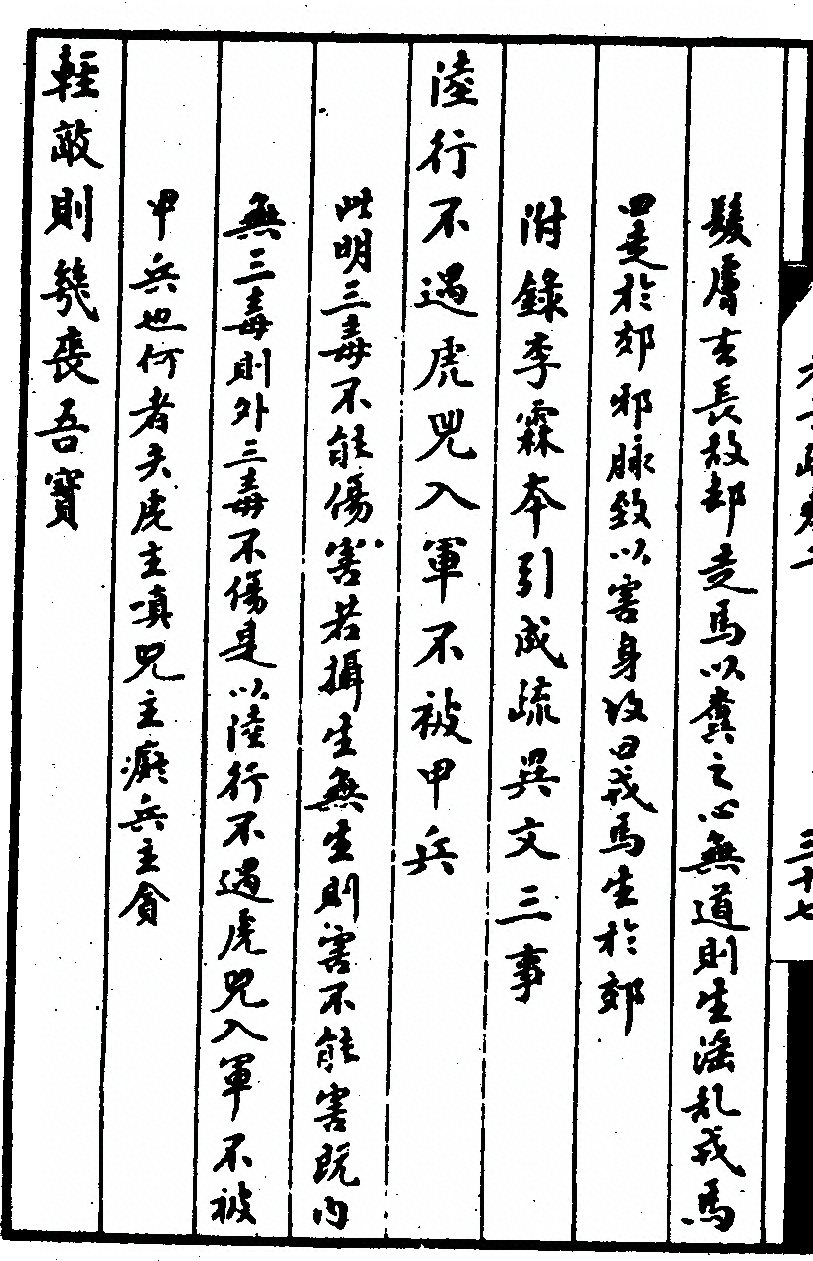 三十七
髮膚壮長故却走馬以糞之心無道則生滛乱戎馬
四走於郊邪脉致以害身故曰戎馬生於郊
附錄李霖本引成疏異文三事
陸行不遇虎兕入軍不被甲兵
此明三毒不能傷害若攝生無生則害不能害既内
無三毒則外三毒不傷是以陸行不遇虎兕入軍不被
甲兵也何者夫虎主嗔兕主癡兵主貪
輕敵則幾喪吾寶